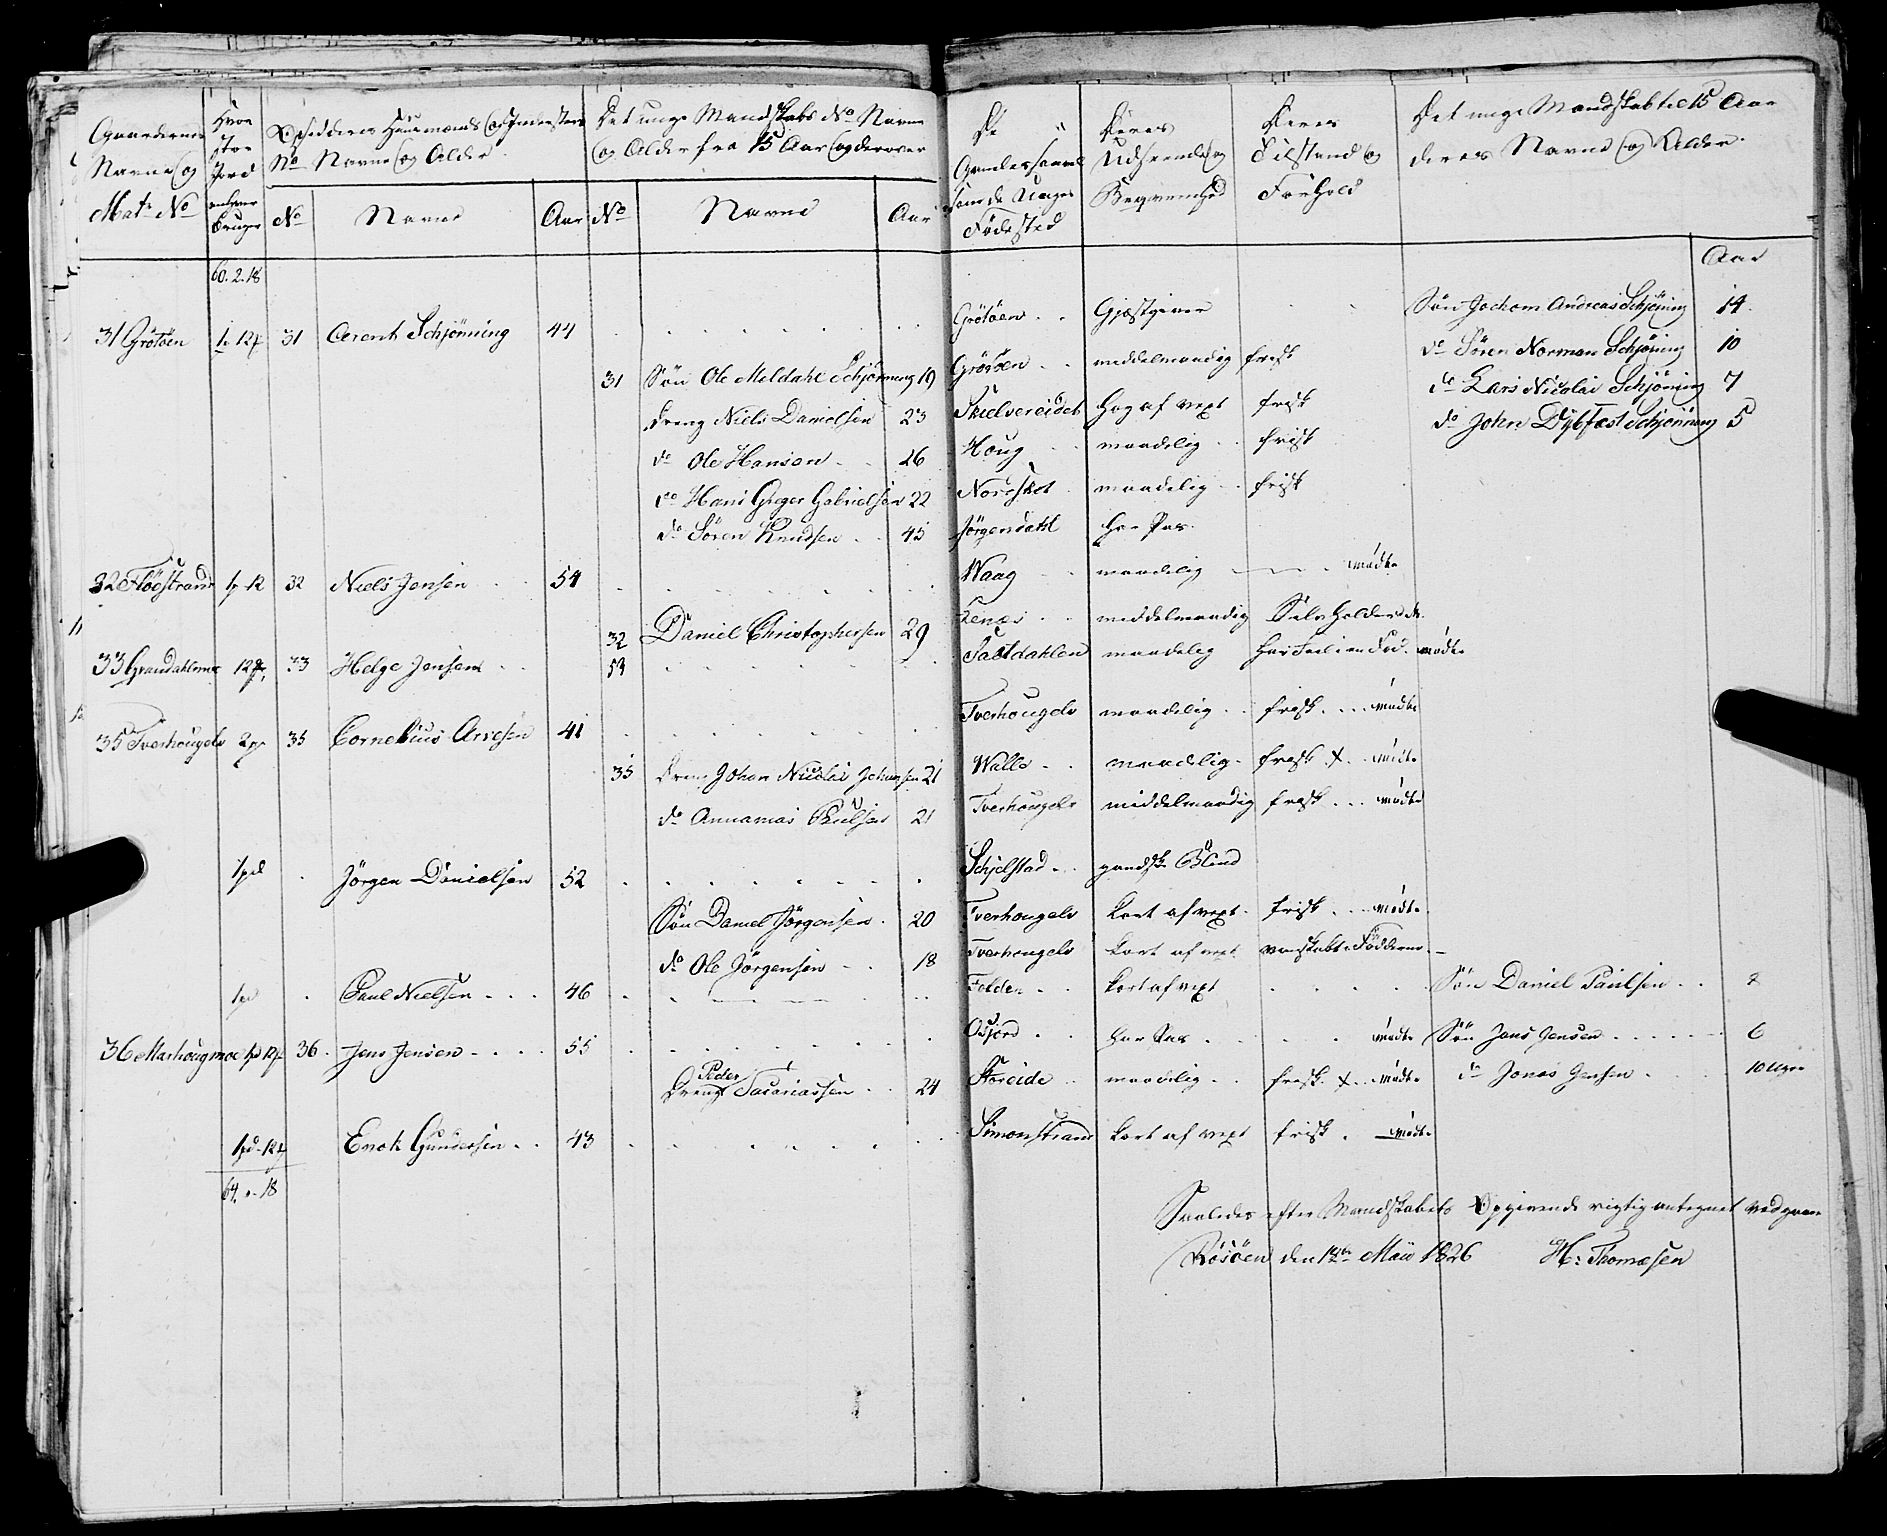 Gaardernes Navne og Mat: No
Hvor stor Jord enhver Bruger
Opsidderes Huusmænds og Indersters No Navne og Alder
Det unge Mandskabs No Navne og Alder fra 15 Aar og derover
De Gamles saavel som de Unges Fødested
Deres Udseende og Beqvemhed
Deres Tilstand og Forhold
Det unge Mandskab til 15 Aar deres Navne og Alder.
No Navne Aar No Navne Aar Aar
60. 2. 18
31 Grötöen 1 - 12 31 Arent Schjønning 44 Grötöen Gjæstgiver Søn Jochom Andreas Schjøning 14
31 Søn Ole Meldahl Schjønning 19 Grötöen middelmaadig frisk do Søren Norman Schjøning 10
Dreng Niels Danielsen 23 Skielvereidet høg af vext frisk do Lars Nicolai Schjøning 7
do Ole Hansen 26 Houg maadelig frisk do John Dybfest Schjønning 5
do Hans Greger Gabrielsen 22 Nordskot maadelig frisk
do Søren Knudsen 45 Jörgendahl har Pas.
32 Flöestrand 1p 12 32 Niels Jensen 54 Waag maadelig mødte
32 Daniel Christophersen 29 Lenæs middelmaadig Selvholdende
33 Grøndahlsmoe 12 33 Helge Jensen 53 Saltdahlen maadelig har Feil i en Fod. mødte
35 Tverhougels 2p 35 Cornelius Arvesen 41 Tverhougels maadelig frisk mødte
35 Dreng Johan Nicolai Johansen 21 Walle maadelig frisk X mødte
do Annanias Poulsen 21 Tverhougels middelmaadig frisk mødte
1pd Jörgen Danielsen 52 Schjelstad gandske Blind
Søn Daniel Jörgensen 20 Tverhougels kort af vext frisk mødte
do Ole Jörgensen 18 Tverhougels kort af vext vanskabte Födderne
1pd Paul Nielsen 46 Folden kort af vext Søn Daniel Paulsen 2
36 Marhougmoe 1pd 12 36 Jens Jensen 55 har Pas mødte Søn Jens Jensen 6
Dreng Peder Sacariassen 24 Storeide maadelig frisk X mødte do Jonas Jensen 10 Uger
1pd - 12 Enok Gundersen 43 Simonstrand kort af vext frisk mødte
64. - 18
Saaledes efter Mandskabets Opgivende rigtig antegnet
Rösöen den 12te Maii 1826 H: Thomesen